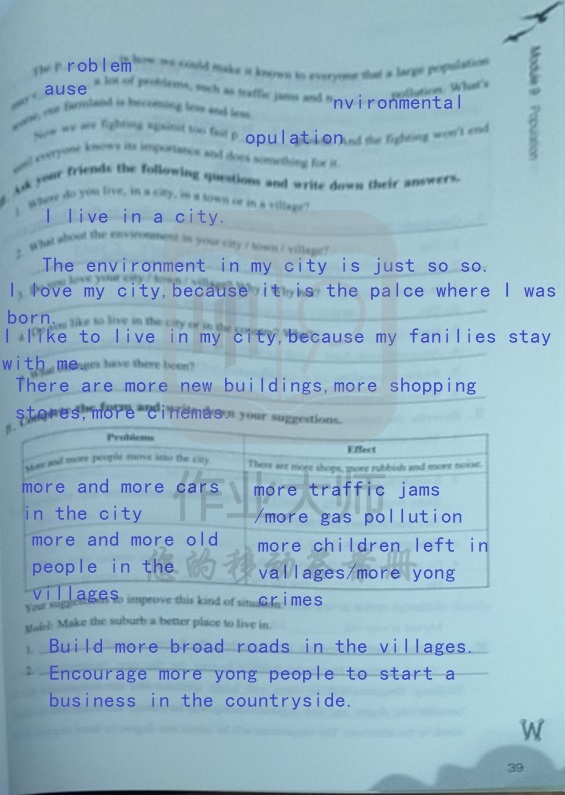 The P roblem is how we could make it known to everyone that a large population
may c ause a lot of problems, such as traffic jams and e nvironmental pollution. What's
worse, our farmland is becoming less and less.
Now we are fighting against too fast p opulation And the fighting won't end
until everyone knows its importance and does something for it.
Ask your friends the following questions and write down their answers.
1. Where do you live, in a city, in a town or in a village?
I live in a city.
2. What about the environment in your city / town / village?
The environment in my city is just so so.
3. Do you love your city / town / village?
I love my city,because it is the palce where I was
born.
4. Do you like to live in the city or in the
I like to live in my city,because my fanilies stay
with me.
changes have there been?
There are more new buildings,more shopping
stores,more cinemas.
Complete the form and write down your suggestions.
Problems
Effect
More and more people move into the city
There are more shops, more rubbish and more noise.
more and more cars
in the city
more traffic jams
/more gas pollution
more and more old
people in the
villages
more children left in
vallages/more yong
crimes
Your suggestions to improve this kind of situation:
Model: Make the suburb a better place to live in.
1. Build more broad roads in the villages.
2. Encourage more yong people to start a
business in the countryside.
作业大师
您的移动答案册
Module 9 Population
W
39